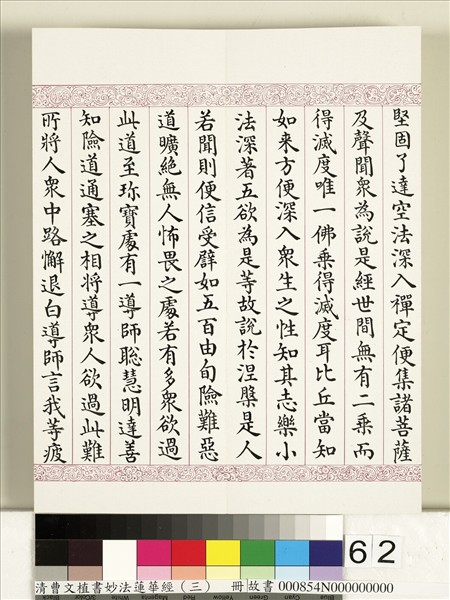 堅固了達空法深入禪定便集諸菩薩
及聲聞衆為說是經世間無有二乘而
得滅度唯一佛乘得滅度耳比丘當知
如來方便深入衆生之性知其志樂小
法深著五欲為是等故說於涅槃是人
若聞則便信受譬如五百由旬險難惡
道曠絕無人怖畏之處若有多衆欲過
此道至珎寶處有一導師聡慧明達善
知險道通塞之相将導衆人欲過此難
所將人衆中路懈退白導師言我等疲
62
清曹文植書妙法蓮華經（三） 冊 故書 000854N000000000